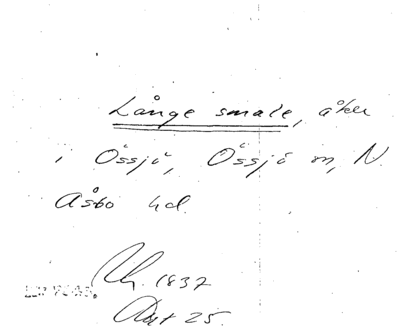 Långe smale, åker
i Össjö, Össjö sn, N.
Åsbo hd.
1837
Akt 25.